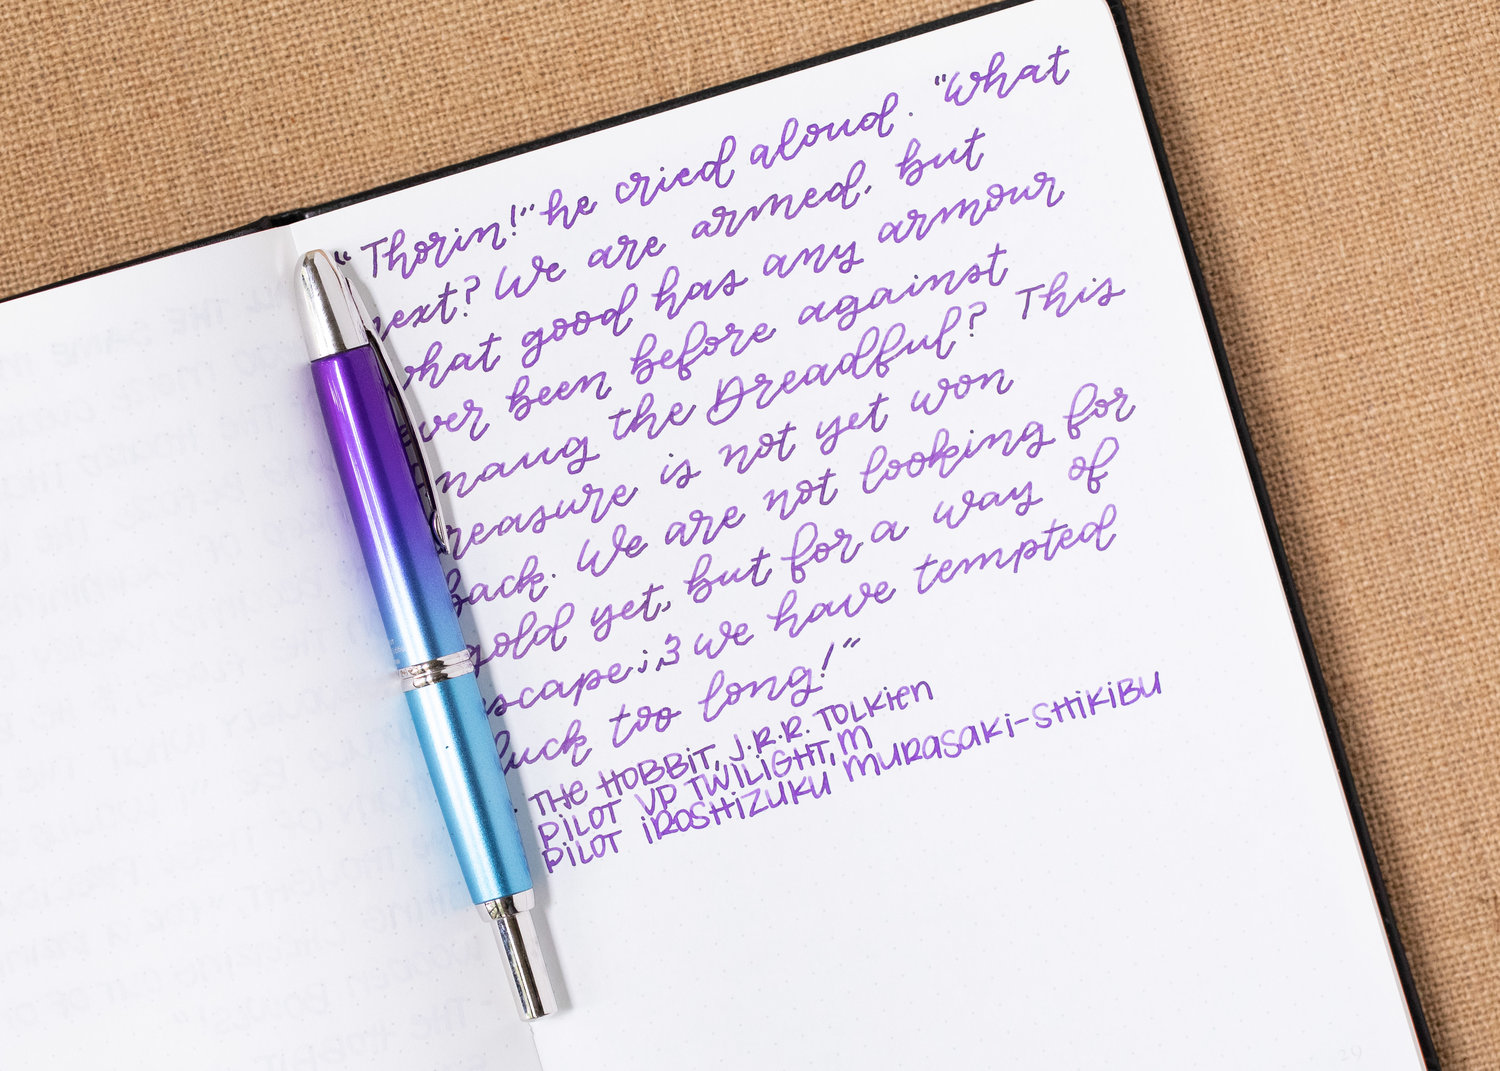 "Thorin!" he cried aloud. "What
next? We are armed, but
what good has any armour
ever been before against
Smaug the Dreadful? This
treasure is not yet won
back. We are not looking for
gold yet, but for a way of
escape; & we have tempted
luck too long!"
THE HOBBIT, J.R.R. TOLKIEN
PILOT VP TWILIGHT, M
PILOT IROSHIZUKU MURASAKI-SHIKIBU
29